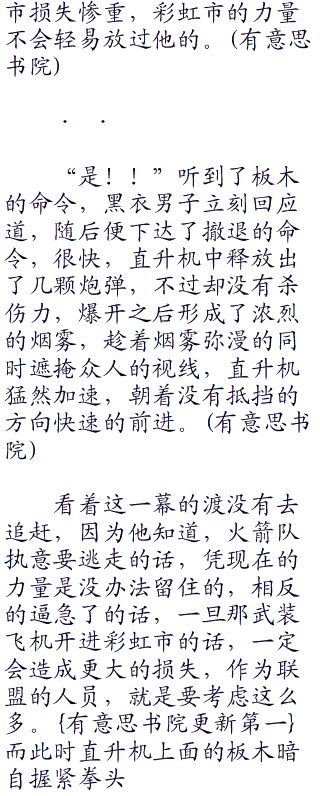 市损失惨重，彩虹市的力量
不会轻易放过他的。(有意思
书院)
. .
“是！！”听到了板木
的命令，黑衣男子立刻回应
道，随后便下达了撤退的命
令，很快，直升机中释放出
了几颗炮弹，不过却没有杀
伤力，爆开之后形成了浓烈
的烟雾，趁着烟雾弥漫的同
时遮掩众人的视线，直升机
猛然加速，朝着没有抵挡的
方向快速的前进。(有意思书
院)
看着这一幕的渡没有去
追赶，因为他知道，火箭队
执意要逃走的话，凭现在的
力量是没办法留住的，相反
的逼急了的话，一旦那武装
飞机开进彩虹市的话，一定
会造成更大的损失，作为联
盟的人员，就是要考虑这么
多。{有意思书院更新第一}
而此时直升机上面的板木暗
自握紧拳头